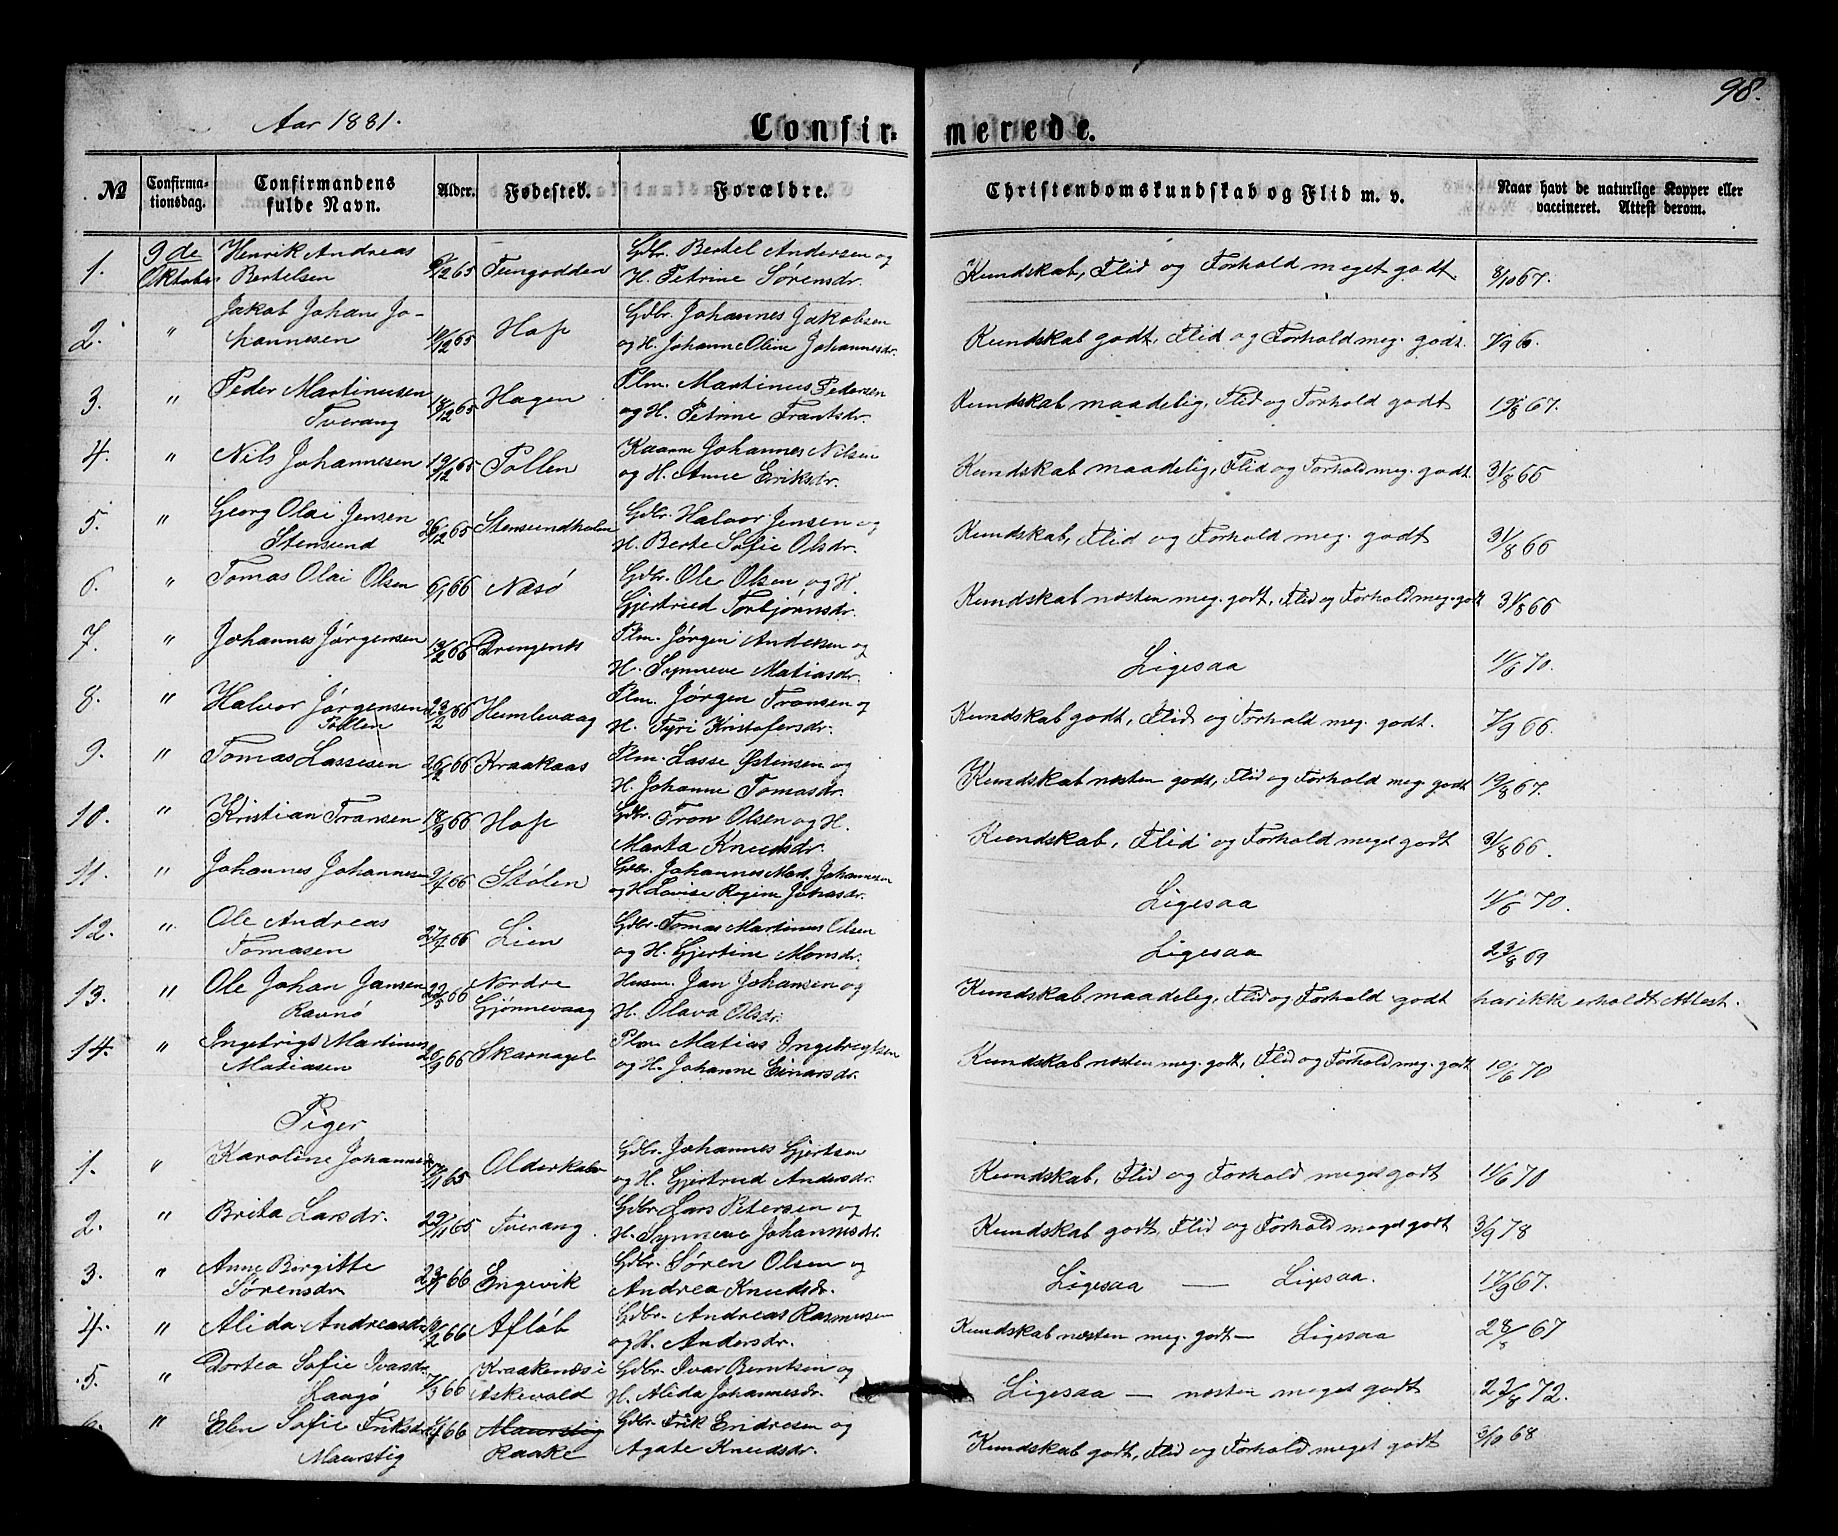 98.
Aar 1881.
Confir- merede.
No Confirma- Confirmandens Alder. Fødested. Forældre. Christendomskundskab og Flid m. v. Naar havt de naturlige Kopper eller
tionsdag. fulde Navn. vaccineret. Attest derom.
1. 9de Henrik Andreas Gdbr. Bertel Andersen og
Oktober Bertelsen 65 Tungodden H. Petrine Sørensdr. Kundskab, Flid og Forhold meget godt. 8/10 67.
2. " Jakob Johan Jo- Gdbr. Johannes Jakobsen
hannesen 10/12 65 Hope og H. Johanne Oline Johannesdr. Kundskab godt, Flid og Forhold meg. godt.
3. " Peder Martinussen Plm. Martinus Pedersen
Tverang 18/12 65 Hagen og H. Petrine Frantsdr. Kundskab maadelig, Flid og Forhold godt 19/8 67.
4. " Nils Johannesen 19/12 65 Pollen Johannes Nilsen
og H. Anne Eriksdr. Kundskab maadelig, Flid og Forhold meg. godt. 31/8 66
5. " Georg Olai Jensen 26/12 65 Stensundholm Gdbr. Halvor Jensen og
Stensund H. Berte Sofie Olsdr. Kundskab, Flid og Forhold meg. godt 31/8 66
6. " Tomas Olai Olsen 6/1 66 Næsø Gdbr. Ole Olsen og H.
Gjertrud Torbjørnsdr. Kundskab næsten meg. godt, Flid og Forhold meg. godt 31/8 66
7. " Johannes Jørgensen 13/2 66 Plm. Jørgen Andersen og
H. Synneve Matiasdr. Ligesaa 11/6 70.
8. " Halvor Jørgensen 23/2 66 Humlevaag Plm. Jørgen Transen og
Pollen H. Tyri Kristofersdr. Kundskab godt, Flid og Forhold meg. godt. 7/9 66.
9. " Tomas Lassesen 26/2 66 Kraakaas Plm. Lasse Østensen og
H. Johanne Tomasdr. Kundskab næsten godt, Flid og Forhold meg. godt 19/8 67.
10. " Kristian Transen 18/3 66 Hope Gdbr. Tron Olsen og H.
Marta Knudsdr. Kundskab, Flid og Forhold meget godt 31/8 66.
11. " Johannes Johannesen 9/4 66 Stølen Gdbr. Johannes Mart. Johannesen
og H. Lovise Regine Johasdr. Ligesaa 11/6 70.
12. " Ole Andreas 27/4 66 Lien Gdbr. Tomas Martinus Olsen
Tomasen og H. Gjertine Monsdr. Ligesaa 23/8 69
13. " Ole Johan Jansen 22/5 66 Nordre Husm. Jan Johansen og
Ravnø Gjønnevaag H. Olava Olsdr. Kundskab maadelig, Flid og Forhold godt har ikk erholdt Attest.
14. " Ingebrigt Martinus 20/9 66 Skarnagel Plm Matias Ingebregtsen
Matiasen og H. Johanne Einarsdr. Kundskab næsten meg. godt, Flid og Forhold meg. godt 10/6 70
Piger
1. " Karoline Johannesdr 17/11 65 Olderkalv Gdbr. Johannes Gjertsen
og H. Gjertrud Andersdr. Kundskab, Flid og Forhold meget godt 11/6 70
2. " Brita Larsdr. 29/11 65 Tverang Gdbr. Lars Petersen og
H. Synneve Johannesdr. Kundskab godt, Flid og Forhold meget godt 3/9 78
3. " Anne Bergitte 66 Engevik Gdbr. Søren Olsen og
Sørensdr Andrea Knudsdr. Ligesaa — Ligesaa. 17/9 67.
4. " Alida Andreasdr 9/2 66 Afløb Gdbr. Andreas Rasmussen
og H. Andersdr. Kundskab næsten meg. godt — Ligesaa 28/8 67
5. " Dortea Sofie Ivarsdr 7/3 66 Kraakenæs i Gdbr. Ivar Berntsen og
Laagø Askevold H. Alida Johannesdr. Ligesaa — næsten meget godt 22/8 72.
6. " Elen Sofie Eriksdr 66 Maurstig Gdbr. Erik Endresen og
Maurstig Raake Agate Knudsdr. Kundskab godt, Flid og Forhold meget godt 68